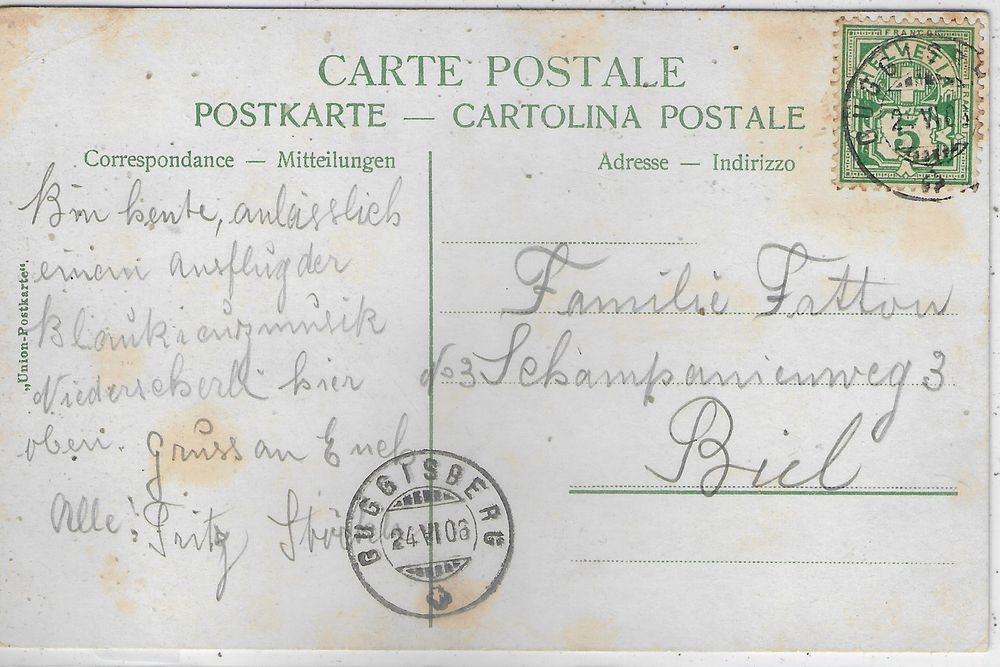 CARTE POSTALE
POSTKARTE — CARTOLINA POSTALE
Correspondance — Mitteilungen
Adresse — Indirizzo
Bin heute, anlässlich
einem Ausflug der
Blaukreuzmusik
Niederscherli hier
oben. Gruss an Euch
Alle! Fritz
„Union-Postkarte“.
Familie Fatton
No 3 Schampanienweg 3
Biel
GUGGISBERG
24 VI 06
FRANCO
HELVETIA
5
GUGGISBERG